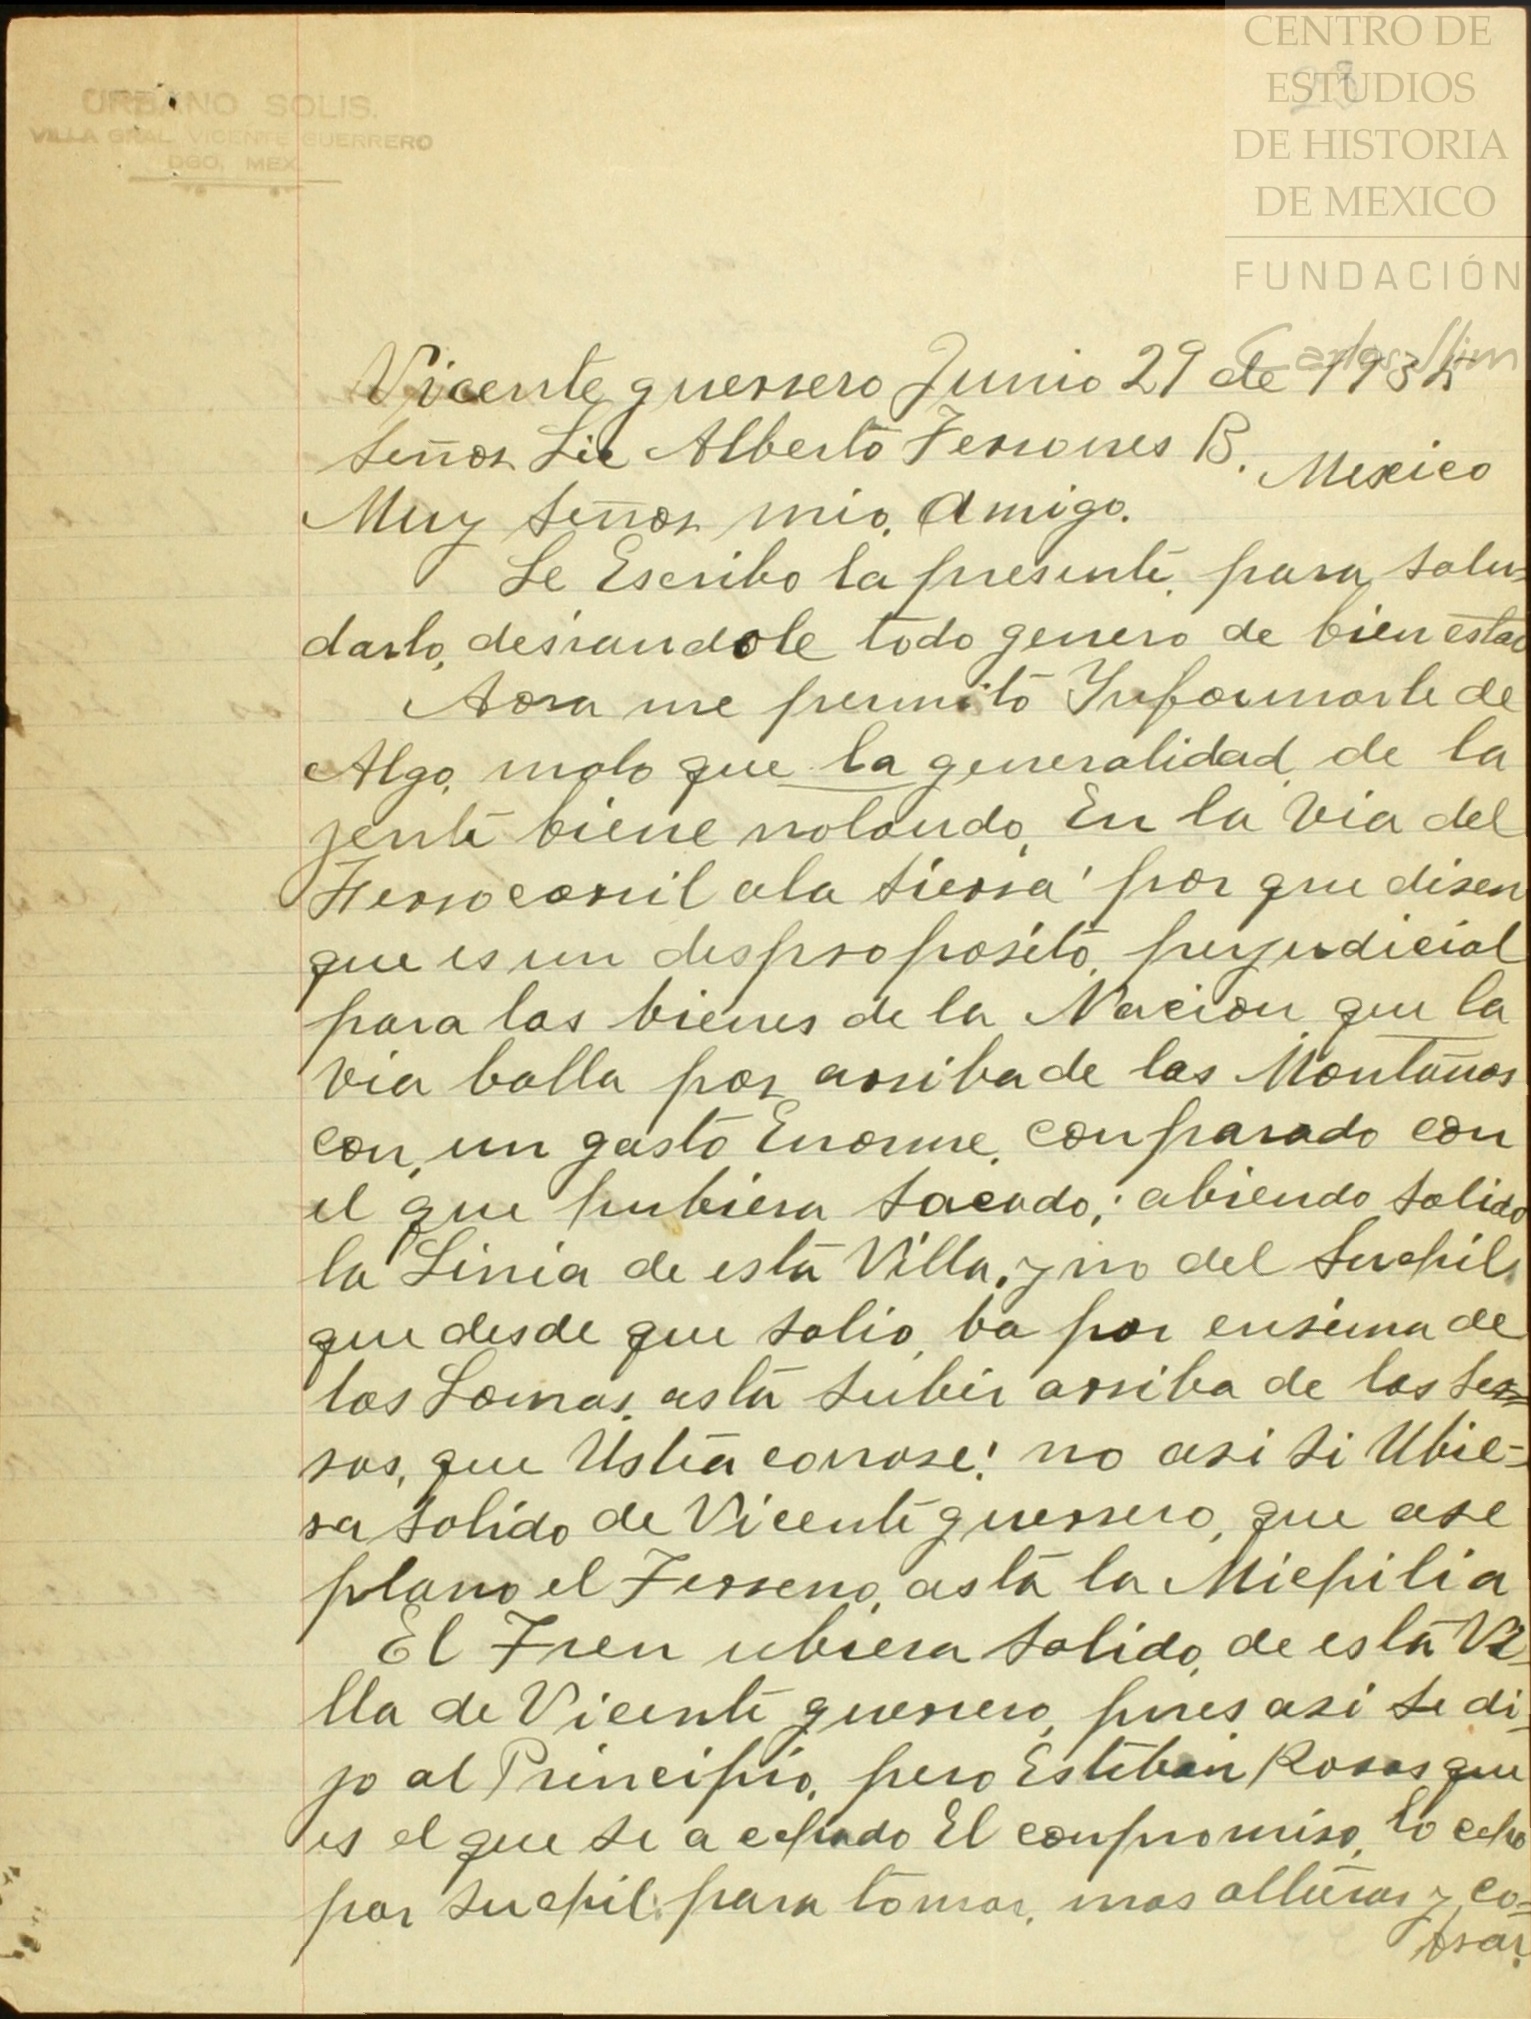 URBANO SOLIS.
VILLA GRAL. VICENTE GUERRERO
DGO, MEX
CENTRO DE
ESTUDIOS
DE HISTORIA
DE MEXICO
FUNDACIÓN
Carlos Slim
Vicente guerrero Junio 29 de 1934
Señor Lic Alberto Terrones B. Mexico
Muy Señor mio, Amigo.
Le Escribo la presente, para salu-
darlo, desiandole todo genero de bien estar
Aora me permito Informarle de
Algo, malo que la generalidad de la
jente biene notando, En la Via del
Ferrocarril ala sierra' por que disen
que es un desproposito, perjudicial
para los bienes de la Nacion, que la
via balla por arriba de las Montañas
con, un gasto Enorme, conparado con
el que hubiera sacado; abiendo salido
la Linia de esta Villa, y no del Suchil,
que desde que salio, ba por ensima de
las Lomas, asta subir arriba de los ser-
ros, que Usted conose! no asi si Ubie-
ra salido de Vicente guerrero, que ase
plano el Terreno, asta la Michilia
El Tren ubiera salido, de esta Vi-
lla de Vicente guerrero, pues asi se di-
jo al Principio, pero Esteban Rosas que
es el que se a echado El conpromiso, lo echo
por Suchil, para tomar, mas alturas y co-
brar.